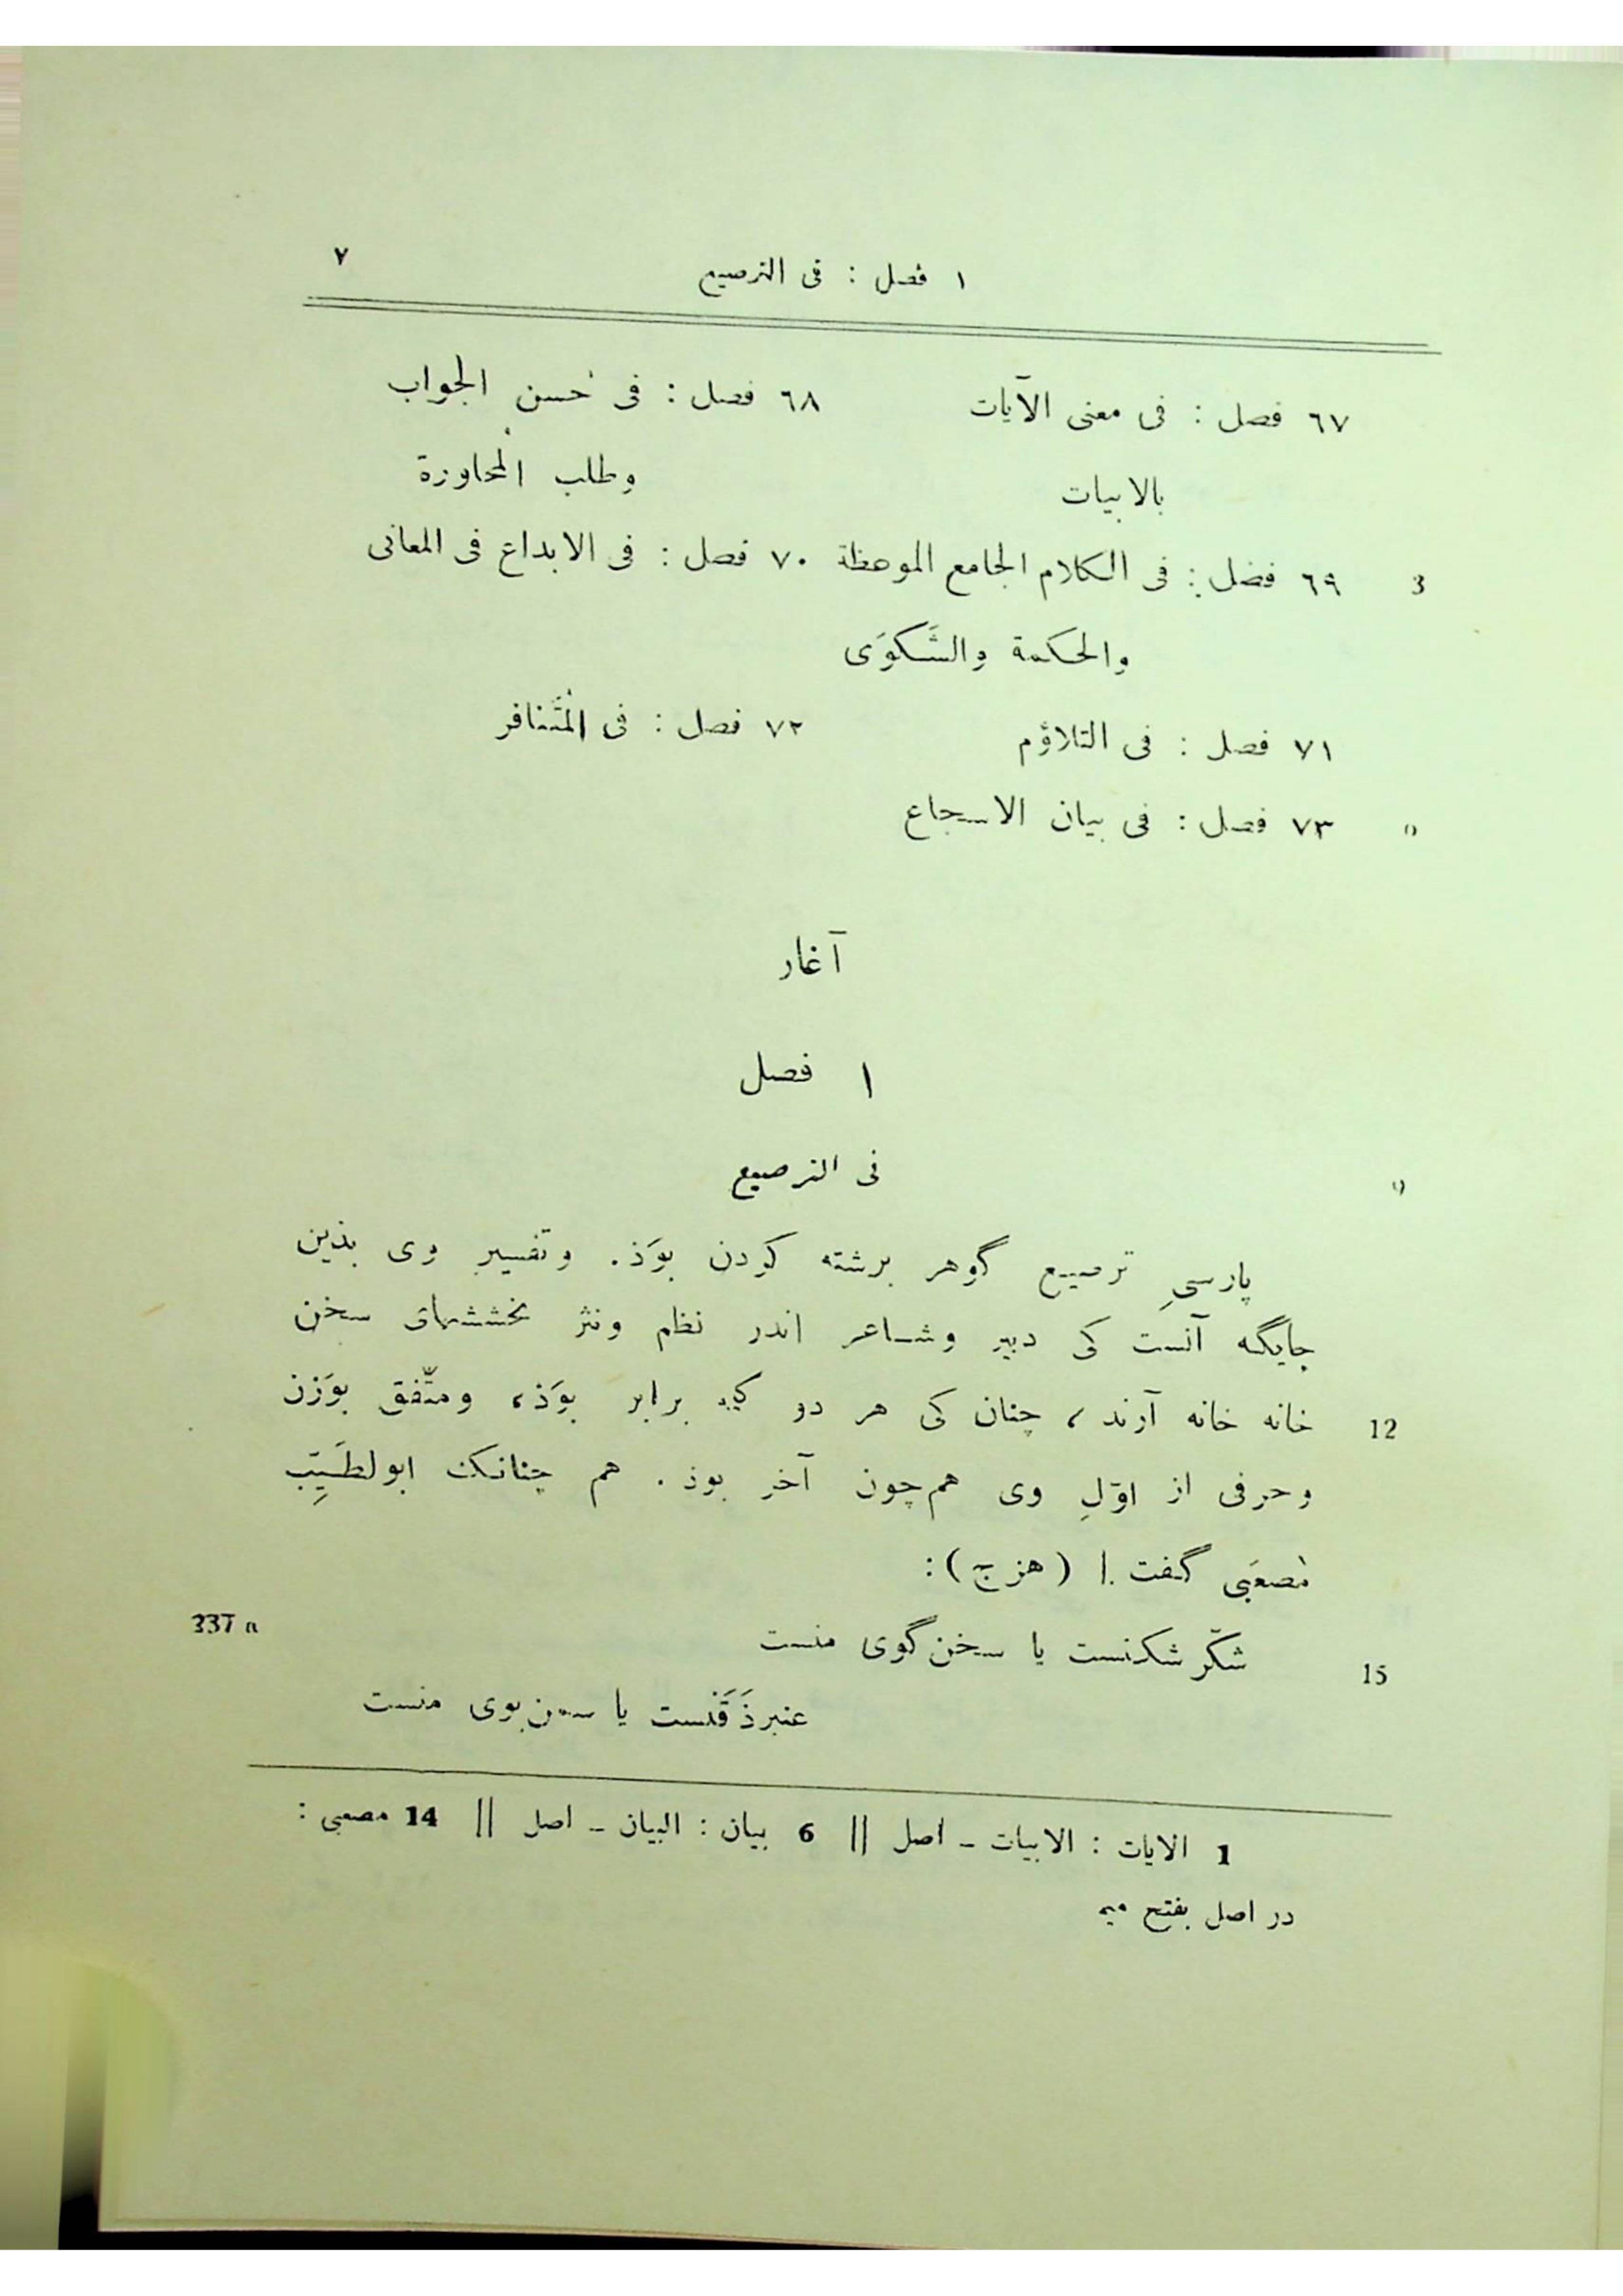 ١ فصل : فی الترصیع ٧
٦٧ فصل : فی معنی الآیات ٦٨ فصل : فی حُسن الجواب
بالابیات وطلب المُحاورة
3 ٦٩ فصل : فی الکلام الجامع الموعظة ٧٠ فصل : فی الابداع فی المعانی
والحکمة والشَکوَی
٧١ فصل : فی التلاؤم ٧٢ فصل : فی المُتَنافر
٧٣ فصل : فی بیان الاسجاع
آغاز
١ فصل
فی الترصیع
پارسیِ ترصیع گوهر برشته کردن بوَذ. وتفسیرِ وی بذین
جایگه آنست کی دبیر وشاعر اندر نظم ونثر بخششهای سخن
12 خانه خانه آرند، چنان کی هر دو برابر بوَذ، ومتّفق بوَزن
وحرفی از اوّلِ وی هم‌چون آخر بوذ. هم چنانک ابولطَیِّب
مُصعَبی گفت | (هزج):
337 a
15 شکّر شکنست یا سخن گوی منست
عنبرذَقَنست یا سمن‌بوی منست
1 الایات : الابیات – اصل || 6 بیان : البیان – اصل || 14 مصعبی :
در اصل بفتح میم